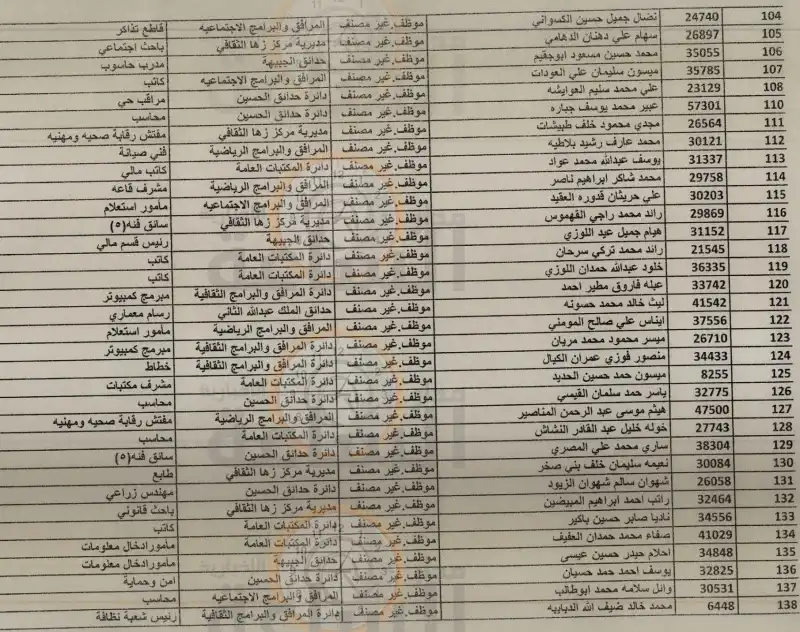 104 24740 نضال جميل حسين الكسواني موظف.غير مصنف المرافق والبرامج الاجتماعيه قاطع تذاكر
105 26897 سهام علي دهنان الدهامي موظف.غير مصنف مديرية مركز زها الثقافي باحث اجتماعي
106 35055 محمد حسين مسعود ابوجقيم موظف.غير مصنف حدائق الجبيهة مدرب حاسوب
107 35785 ميسون سليمان علي العودات موظف.غير مصنف المرافق والبرامج الاجتماعيه كاتب
108 23129 علي محمد سليم العوايشه موظف.غير مصنف دائرة حدائق الحسين مراقب حي
110 57301 عبير محمد يوسف جباره موظف.غير مصنف دائرة حدائق الحسين محاسب
111 26564 مجدي محمود خلف طبيشات موظف.غير مصنف مديرية مركز زها الثقافي مفتش رقابة صحيه ومهنيه
112 30121 محمد عارف رشيد بلاطيه موظف.غير مصنف المرافق والبرامج الرياضية فني صيانة
113 31337 يوسف عبدالله محمد عواد موظف.غير مصنف دائرة المكتبات العامة كاتب مالي
114 29758 محمد شاكر ابراهيم ناصر موظف.غير مصنف المرافق والبرامج الرياضية مشرف قاعه
115 30203 علي حريثان قدوره العقيد موظف.غير مصنف المرافق والبرامج الاجتماعيه مأمور استعلام
116 29869 رائد محمد راجي القهموس موظف.غير مصنف مديرية مركز زها الثقافي سائق فئه(٥)
117 31152 هيام جميل عيد اللوزي موظف.غير مصنف حدائق الجبيهة رئيس قسم مالي
118 21545 رائد محمد تركي سرحان موظف.غير مصنف دائرة المكتبات العامة كاتب
119 36335 خلود عبدالله حمدان اللوزي موظف.غير مصنف دائرة المكتبات العامة كاتب
120 33742 عبله فاروق مطير احمد موظف.غير مصنف دائرة المرافق والبرامج الثقافية مبرمج كمبيوتر
121 41542 ليث خالد محمد حسونه موظف.غير مصنف حدائق الملك عبدالله الثاني رسام معماري
122 37556 ايناس علي صالح المومني موظف.غير مصنف المرافق والبرامج الرياضية مأمور استعلام
123 26710 ميسر محمود محمد مريان موظف.غير مصنف دائرة المرافق والبرامج الثقافية مبرمج كمبيوتر
124 34433 منصور فوزي عمران الكيال موظف.غير مصنف دائرة المرافق والبرامج الثقافية خطاط
125 8255 ميسون حمد حسين الحديد موظف.غير مصنف دائرة المكتبات العامة مشرف مكتبات
126 32775 ياسر حمد سلمان القيسي موظف.غير مصنف دائرة حدائق الحسين محاسب
127 47500 هيثم موسى عبد الرحمن المناصير موظف.غير مصنف المرافق والبرامج الرياضية مفتش رقابة صحيه ومهنيه
128 27743 خوله خليل عبد القادر النشاش موظف.غير مصنف دائرة المكتبات العامة محاسب
129 38304 ساري محمد علي المصري موظف.غير مصنف دائرة حدائق الحسين سائق فئه(٥)
130 30084 نعيمه سليمان خلف بني صخر موظف.غير مصنف مديرية مركز زها الثقافي طابع
131 26058 شهوان سالم شهوان الزيود موظف.غير مصنف دائرة حدائق الحسين مهندس زراعي
132 32464 راتب احمد ابراهيم المبيضين موظف.غير مصنف مديرية مركز زها الثقافي باحث قانوني
133 34556 ناديا صابر حسين باكير موظف.غير مصنف دائرة المكتبات العامة كاتب
134 41029 صفاء محمد حمدان العفيف موظف.غير مصنف دائرة المكتبات العامة مأمور ادخال معلومات
135 34848 احلام حيدر حسين عيسى موظف.غير مصنف حدائق الجبيهة مأمور ادخال معلومات
136 32825 يوسف احمد حمد حسيان موظف.غير مصنف دائرة حدائق الحسين امن وحماية
137 30531 وائل سلامه محمد ابوطالب موظف.غير مصنف المرافق والبرامج الاجتماعيه محاسب
138 6448 محمد خالد ضيف الله الدبايبه موظف.غير مصنف دائرة المرافق والبرامج الثقافية رئيس شعبة نظافة